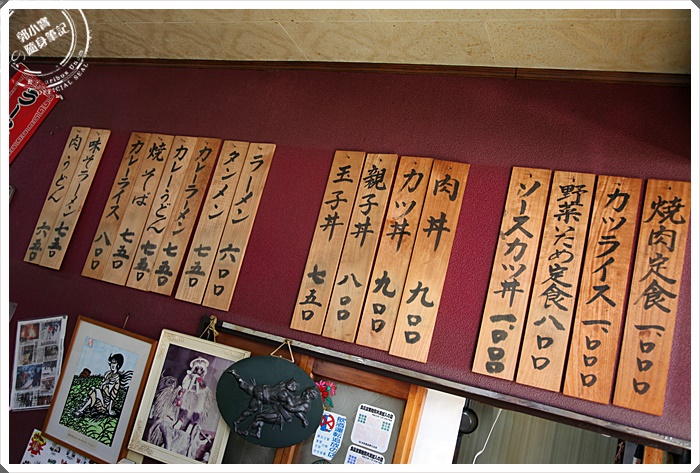 焼肉定食 一、〇〇〇
カツライス 一、〇〇〇
野菜いため定食 八〇〇
ソースカツ丼 一、〇〇〇
肉丼 九〇〇
カツ丼 九〇〇
親子丼 八〇〇
玉子丼 七五〇
ラーメン 六〇〇
タンメン 七五〇
カレーラーメン 七五〇
カレーうどん 七五〇
焼そば 七五〇
カレーライス 八〇〇
味そラーメン 七五〇
肉うどん 六五〇
郭小寶
隨身筆記
OFFICIAL SEAL